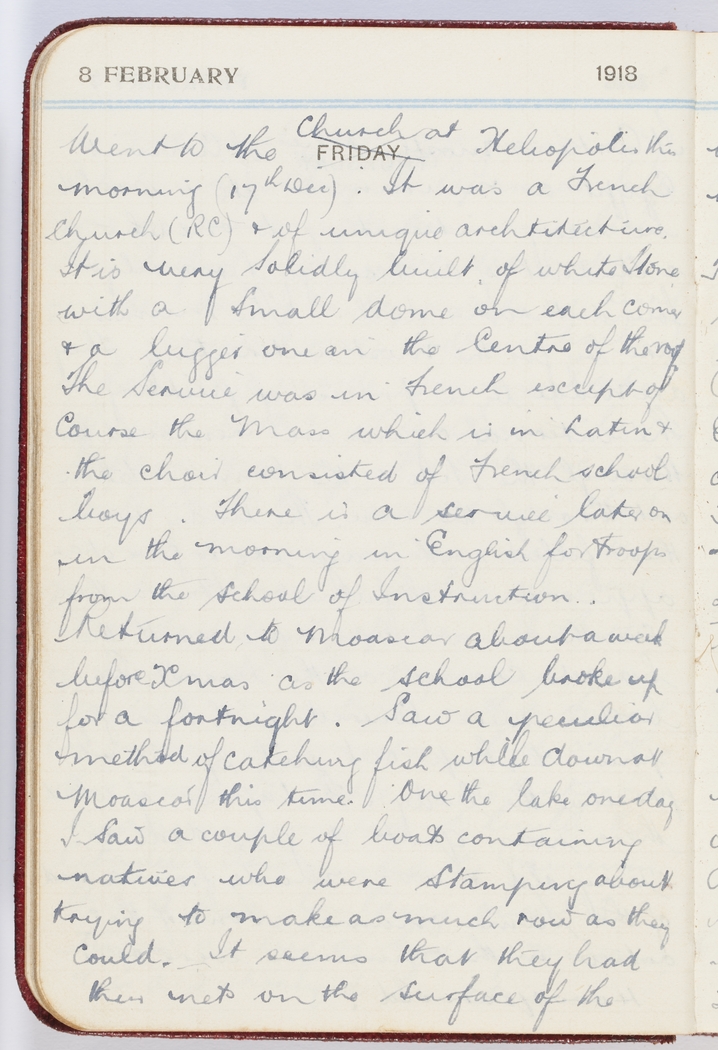 8 FEBRUARY 1918
Went to the Church at Heliopolis this
FRIDAY
morning (17th Dec). It was a French
Church (RC) & of unique architecture.
It is very solidly built of white Stone
with a small dome on each corner
& a bigger one on the Centre of the roof
The Service was in French except of
Course the Mass which is in Latin &
the choir consisted of French school
boys. There is a service later on
in the morning in English for troops
from the School of Instruction..
Returned to Moascar about a week
before Xmas as the school broke up
for a fortnight. Saw a peculiar
method of catching fish while down at
Moascar this time. One the lake one day
I saw a couple of boats containing
natives who were stamping about
trying to make as much row as they
could. It seems that they had
their nets on the surface of the